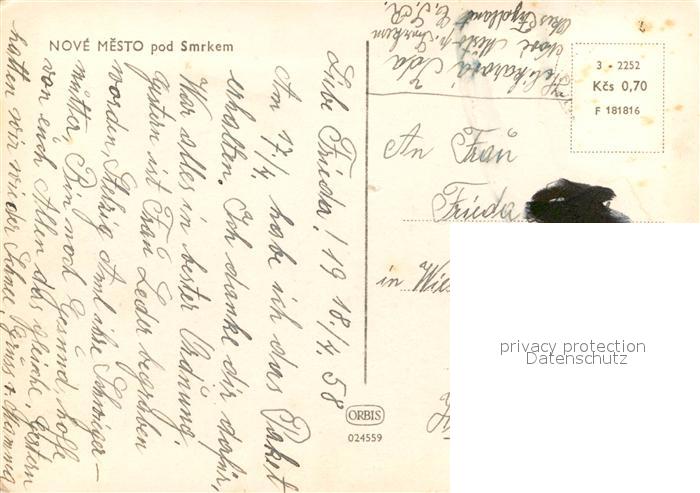 NOVÉ MĚSTO pod Smrkem
Liebe Frieda! 19 18./4. 58
Am 17./4. habe ich das Paket
erhalten. Ich danke dir dafür,
War alles in bester Ordnung.
Gestern ist Frau Leder begraben
worden, ihre Schwieger-
mutter, Bin noch Gesund, hoffe
von euch Allen das gleiche, Gestern
hatten wir wieder Schnee, Gruss
Ida
Nové Město p. Smrkem
Č. S. R.
3 - 2252
Kčs 0,70
F 181816
An Frau
Frieda
in
ORBIS
024559
privacy protection
Datenschutz